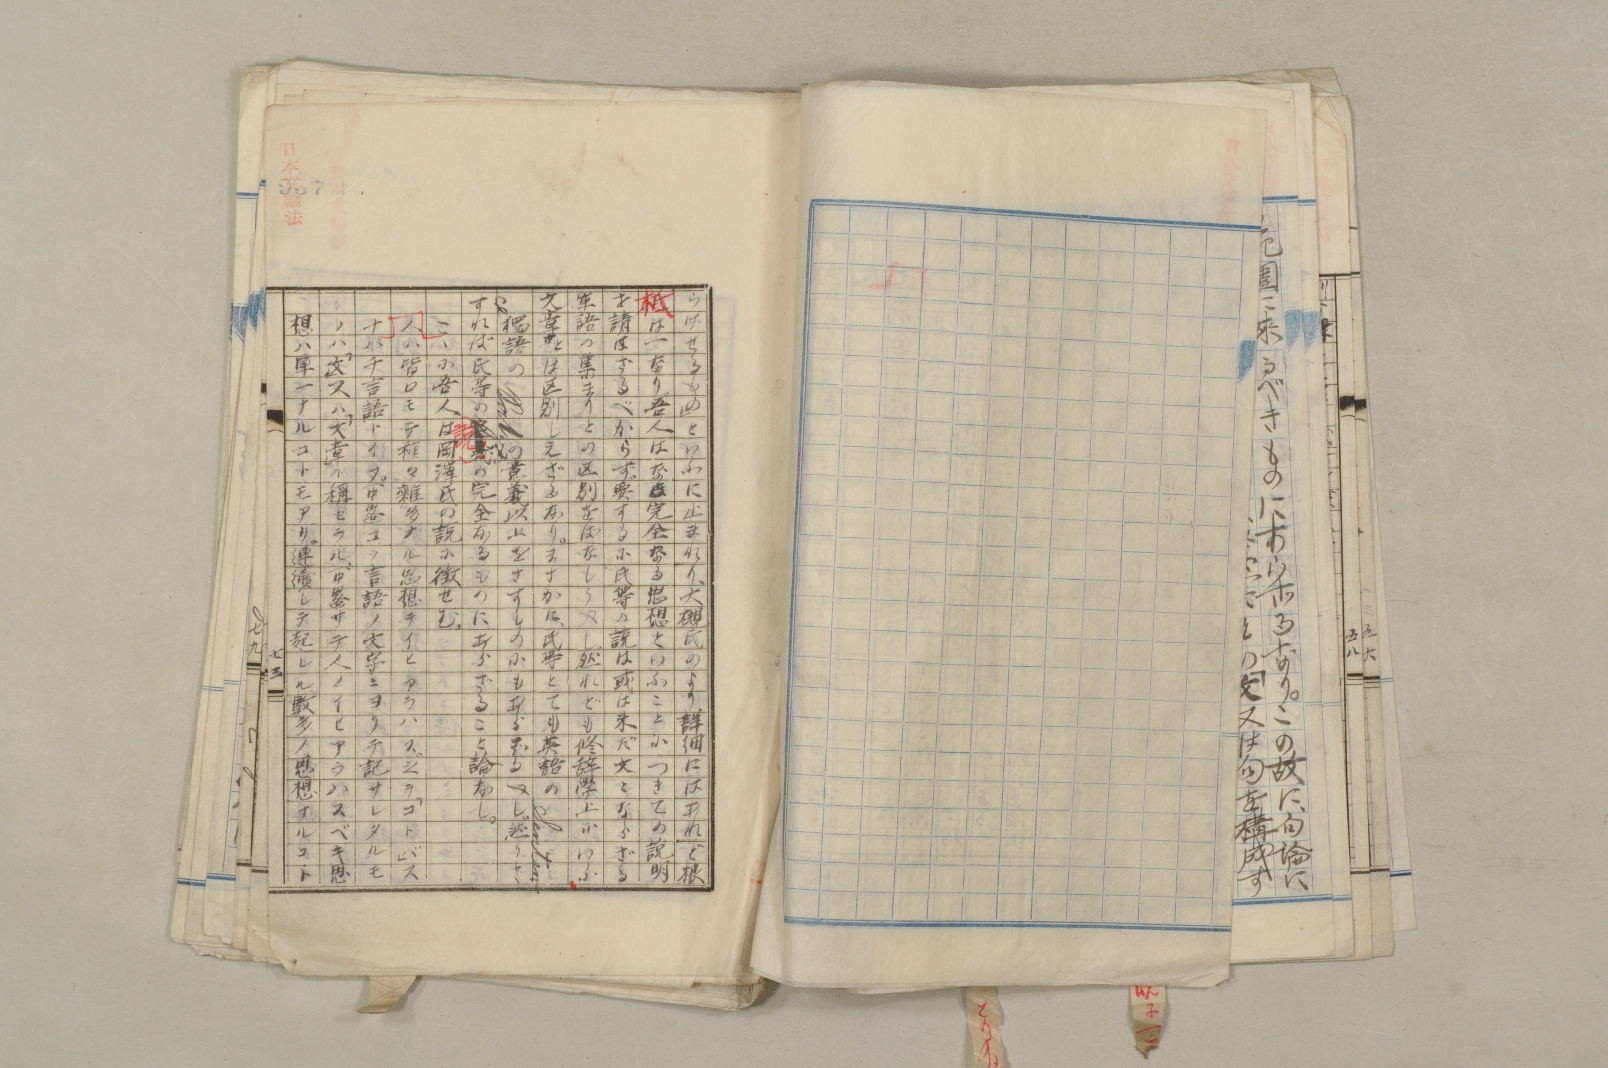 範囲に来るべきものにあらざるなり。この故に、句論に
その文又は句を構成す
五六
五八
らはせるものといふに止まれり、大槻氏のより詳細にはあれど根
柢は一なり。吾人はなほ完全なる思想といふことにつきての説明
を請はざるべからず。要するに氏等の説は或は未だ文とならざる
単語の集まりとの区別をばなしうべし。然れども修辞学上にいふ
文章とは区別しえざるなり。まさかに、氏等とても英語の Sentence
独語の Satz の意義以上をさすものにもあらざるべし。然りと
すれば氏等の説の完全なるものにあらざること論なし。
こゝに吾人は岡澤氏の説に徴せむ。
人ハ皆口モテ種々雑多ナル思想ヲイヒアラハス。シラ「コトバ」ス
ナハチ言語トイフ。中畧コノ言語ノ文字ニヨリテ記サレタルモ
ノハ「文」又ハ「文章」ト稱セラル。中畧サテ人ノイヒアラハスベキ思
想ハ單一ナルコトモアリ。連續シテ起レル數多ノ思想ナルコト
日本文論法
957
七三
七九